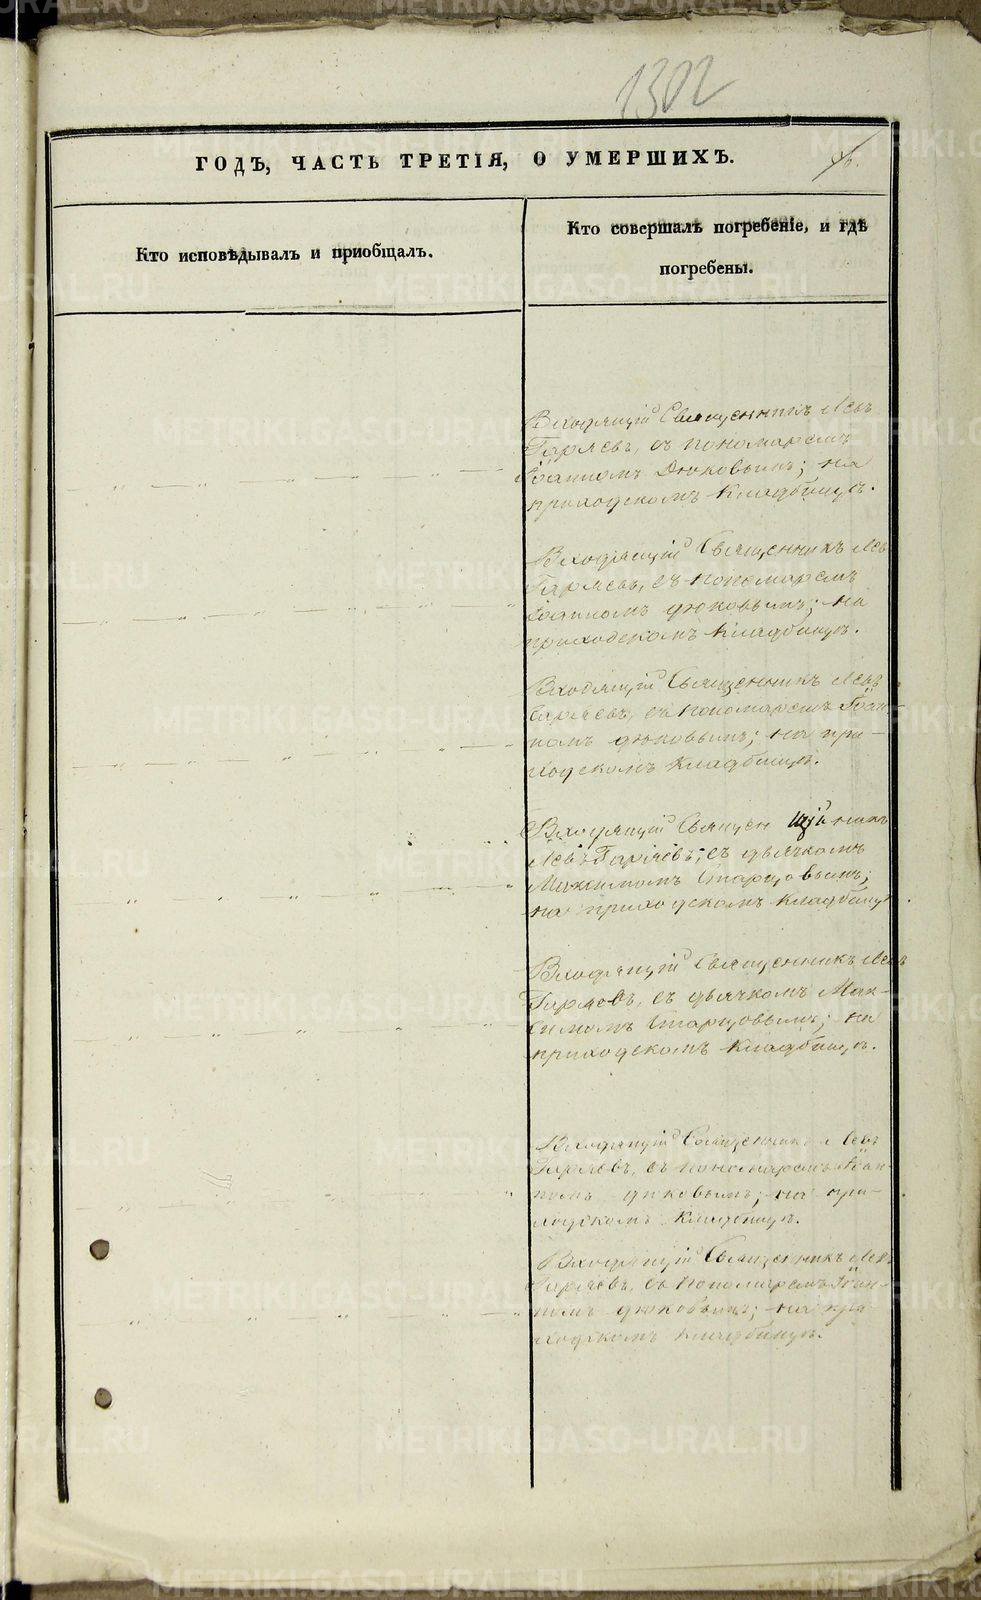 1302
ГОДЪ, ЧАСТЬ ТРЕТІЯ, О УМЕРШИХЪ.
Кто исповѣдывалъ и приобщалъ.
Кто совершалъ погребеніе, и гдѣ
погребены.
Входящій Священникъ Левъ
Гаряевъ, съ пономаремъ
Іоанномъ Дюковымъ; на
приходскомъ Кладбищѣ.
Входящій Священникъ Левъ
Гаряевъ, съ пономаремъ
Іоанномъ Дюковымъ; на
приходскомъ Кладбищѣ.
Входящій Священникъ Левъ
Гаряевъ, съ пономаремъ Іоан-
номъ Дюковымъ; на при-
ходскомъ Кладбищѣ.
Входящій Священникъ
Левъ Гаряевъ; съ дьячкомъ
Максимомъ Старцовымъ;
на приходскомъ Кладбищѣ.
Входящій Священникъ Левъ
Гаряевъ, съ дьячкомъ Мак-
симомъ Старцовымъ; на
приходскомъ Кладбищѣ.
Входящій Священникъ Левъ
Гаряевъ, съ пономаремъ Іоан-
номъ Дюковымъ; на при-
ходскомъ Кладбищѣ.
Входящій Священникъ Левъ
Гаряевъ, съ пономаремъ Іоан-
номъ Дюковымъ; на при-
ходскомъ Кладбищѣ.
METRIKI.GASO-URAL.RU